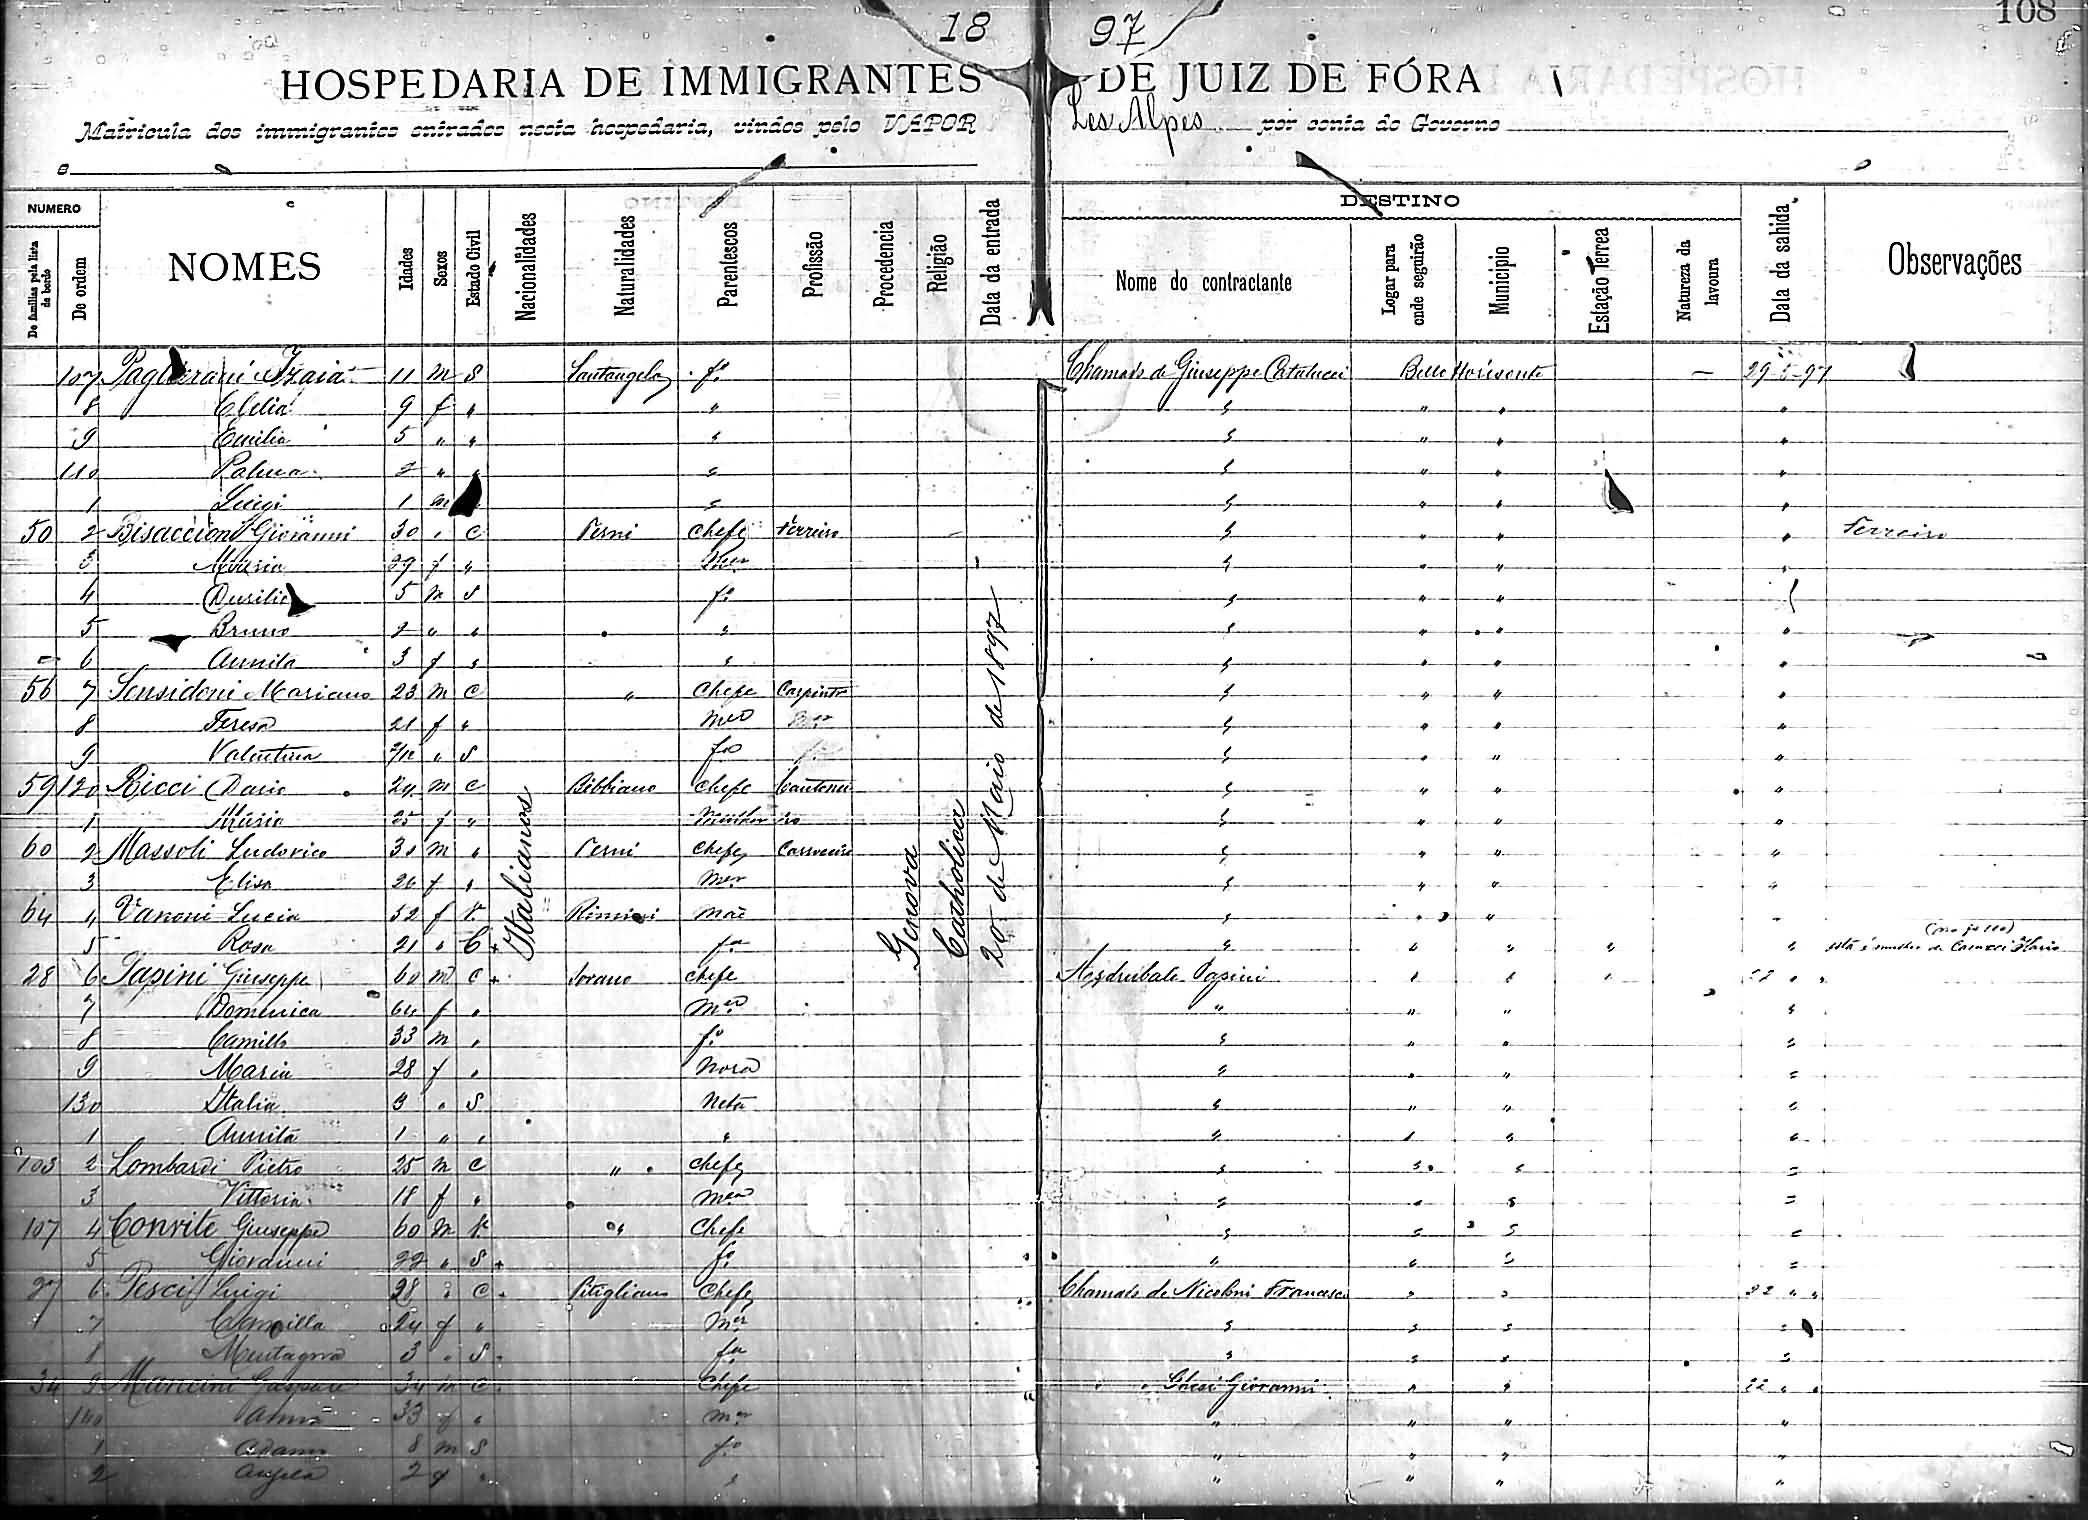 108
18 97
HOSPEDARIA DE IMMIGRANTES DE JUIZ DE FÓRA
Matricula dos immigrantes entrados nesta hospedaria, vindos pelo VAPOR Les Alpes por conta do Governo
e
NUMERO
De familias pela lista de bordo
De ordem
NOMES
Idades
Sexos
Estado Civil
Nacionalidades
Naturalidades
Parentescos
Profissão
Procedencia
Religião
Data da entrada
DESTINO
Nome do contractante
Logar para onde seguirão
Municipio
Estação Terrea
Natureza da lavoura
Data da sahida
Observações
Italianos
Genova
Catholica
20 de Maio de 1897
107 11 m S Santangelo fo Chamado de Giuseppe Bello Horisonte — 29-5-97
8 Clelia 9 f " " " " " "
9 Emilia 5 " " " " " " "
110 Palma 2 " " " " " " "
1 Luigi 1 m " " " " "
50 2 Bisaccioni Giovanni 30 " C Terni Chefe Ferreiro " " " " Ferreiro
3 Maria 29 f " Mer " " " "
4 5 m S fo " " "
5 Bruno 2 " " " " " " "
6 Annita 3 f " " " " " "
56 7 Sensidoni Mariano 23 m C " Chefe Carpintro " " " "
8 Teresa 21 f " Mer " " " "
9 Valentina 2/12 " S fa " " " "
59 120 Ricci Dario 24 m C Bibbiano Chefe " " " "
1 Maria 25 f " Mulher " " " "
60 2 Massoli Ludovico 30 m " Terni Chefe Carroceiro " " " "
3 Elisa 26 f " Mer " " " "
64 4 Vanoni Lucia 52 f V. Rimini Mãe " " " "
5 Rosa 21 " C fa " " " " " está é mulher de Mario
28 6 Papini Giuseppe 60 m C Sorano Chefe Asdrubale Papini " " " 22 " "
7 Domenica 64 f " Mer " " " "
8 Camillo 33 m " fo " " " "
9 Maria 28 f " Nora " " " "
130 Italia 3 " S Neta " " " "
1 Annita 1 " " " " " " "
103 2 Lombardi Pietro 25 m C " Chefe " " " "
3 Vittoria 18 f " Mer " " " "
107 4 Convite Giuseppe 60 m V. " Chefe " " " "
5 22 " S fo " " " "
27 6 Pesci Luigi 28 " C Pitigliano Chefe Chamado de Nicolini Francesco " " 22 " "
7 Camilla 24 f " Mer " " " "
8 3 " S fa " " " "
34 9 Mancini Gaspare 34 m C Chefe " " Giovanni " " 22 " "
140 Anna 33 f " mer " " " "
1 Adamo 8 m S fo " " " "
2 Angela 2 f " " " " " "